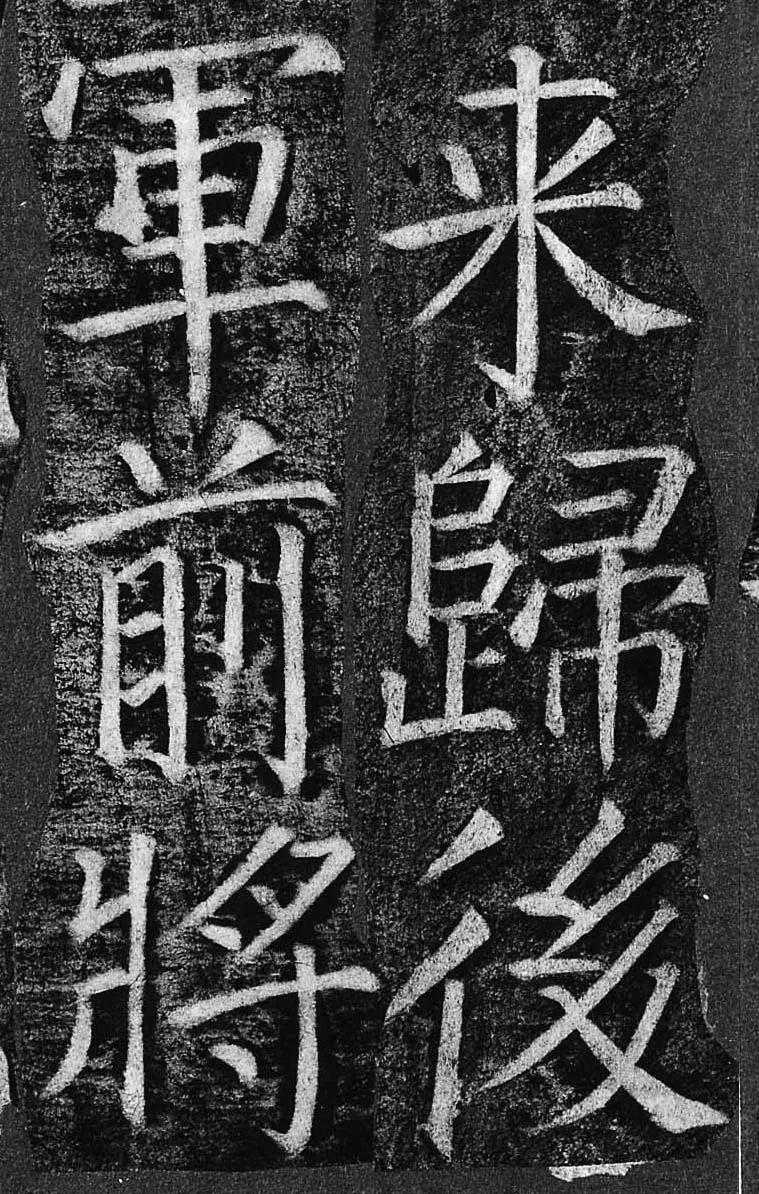 来歸後
軍前將